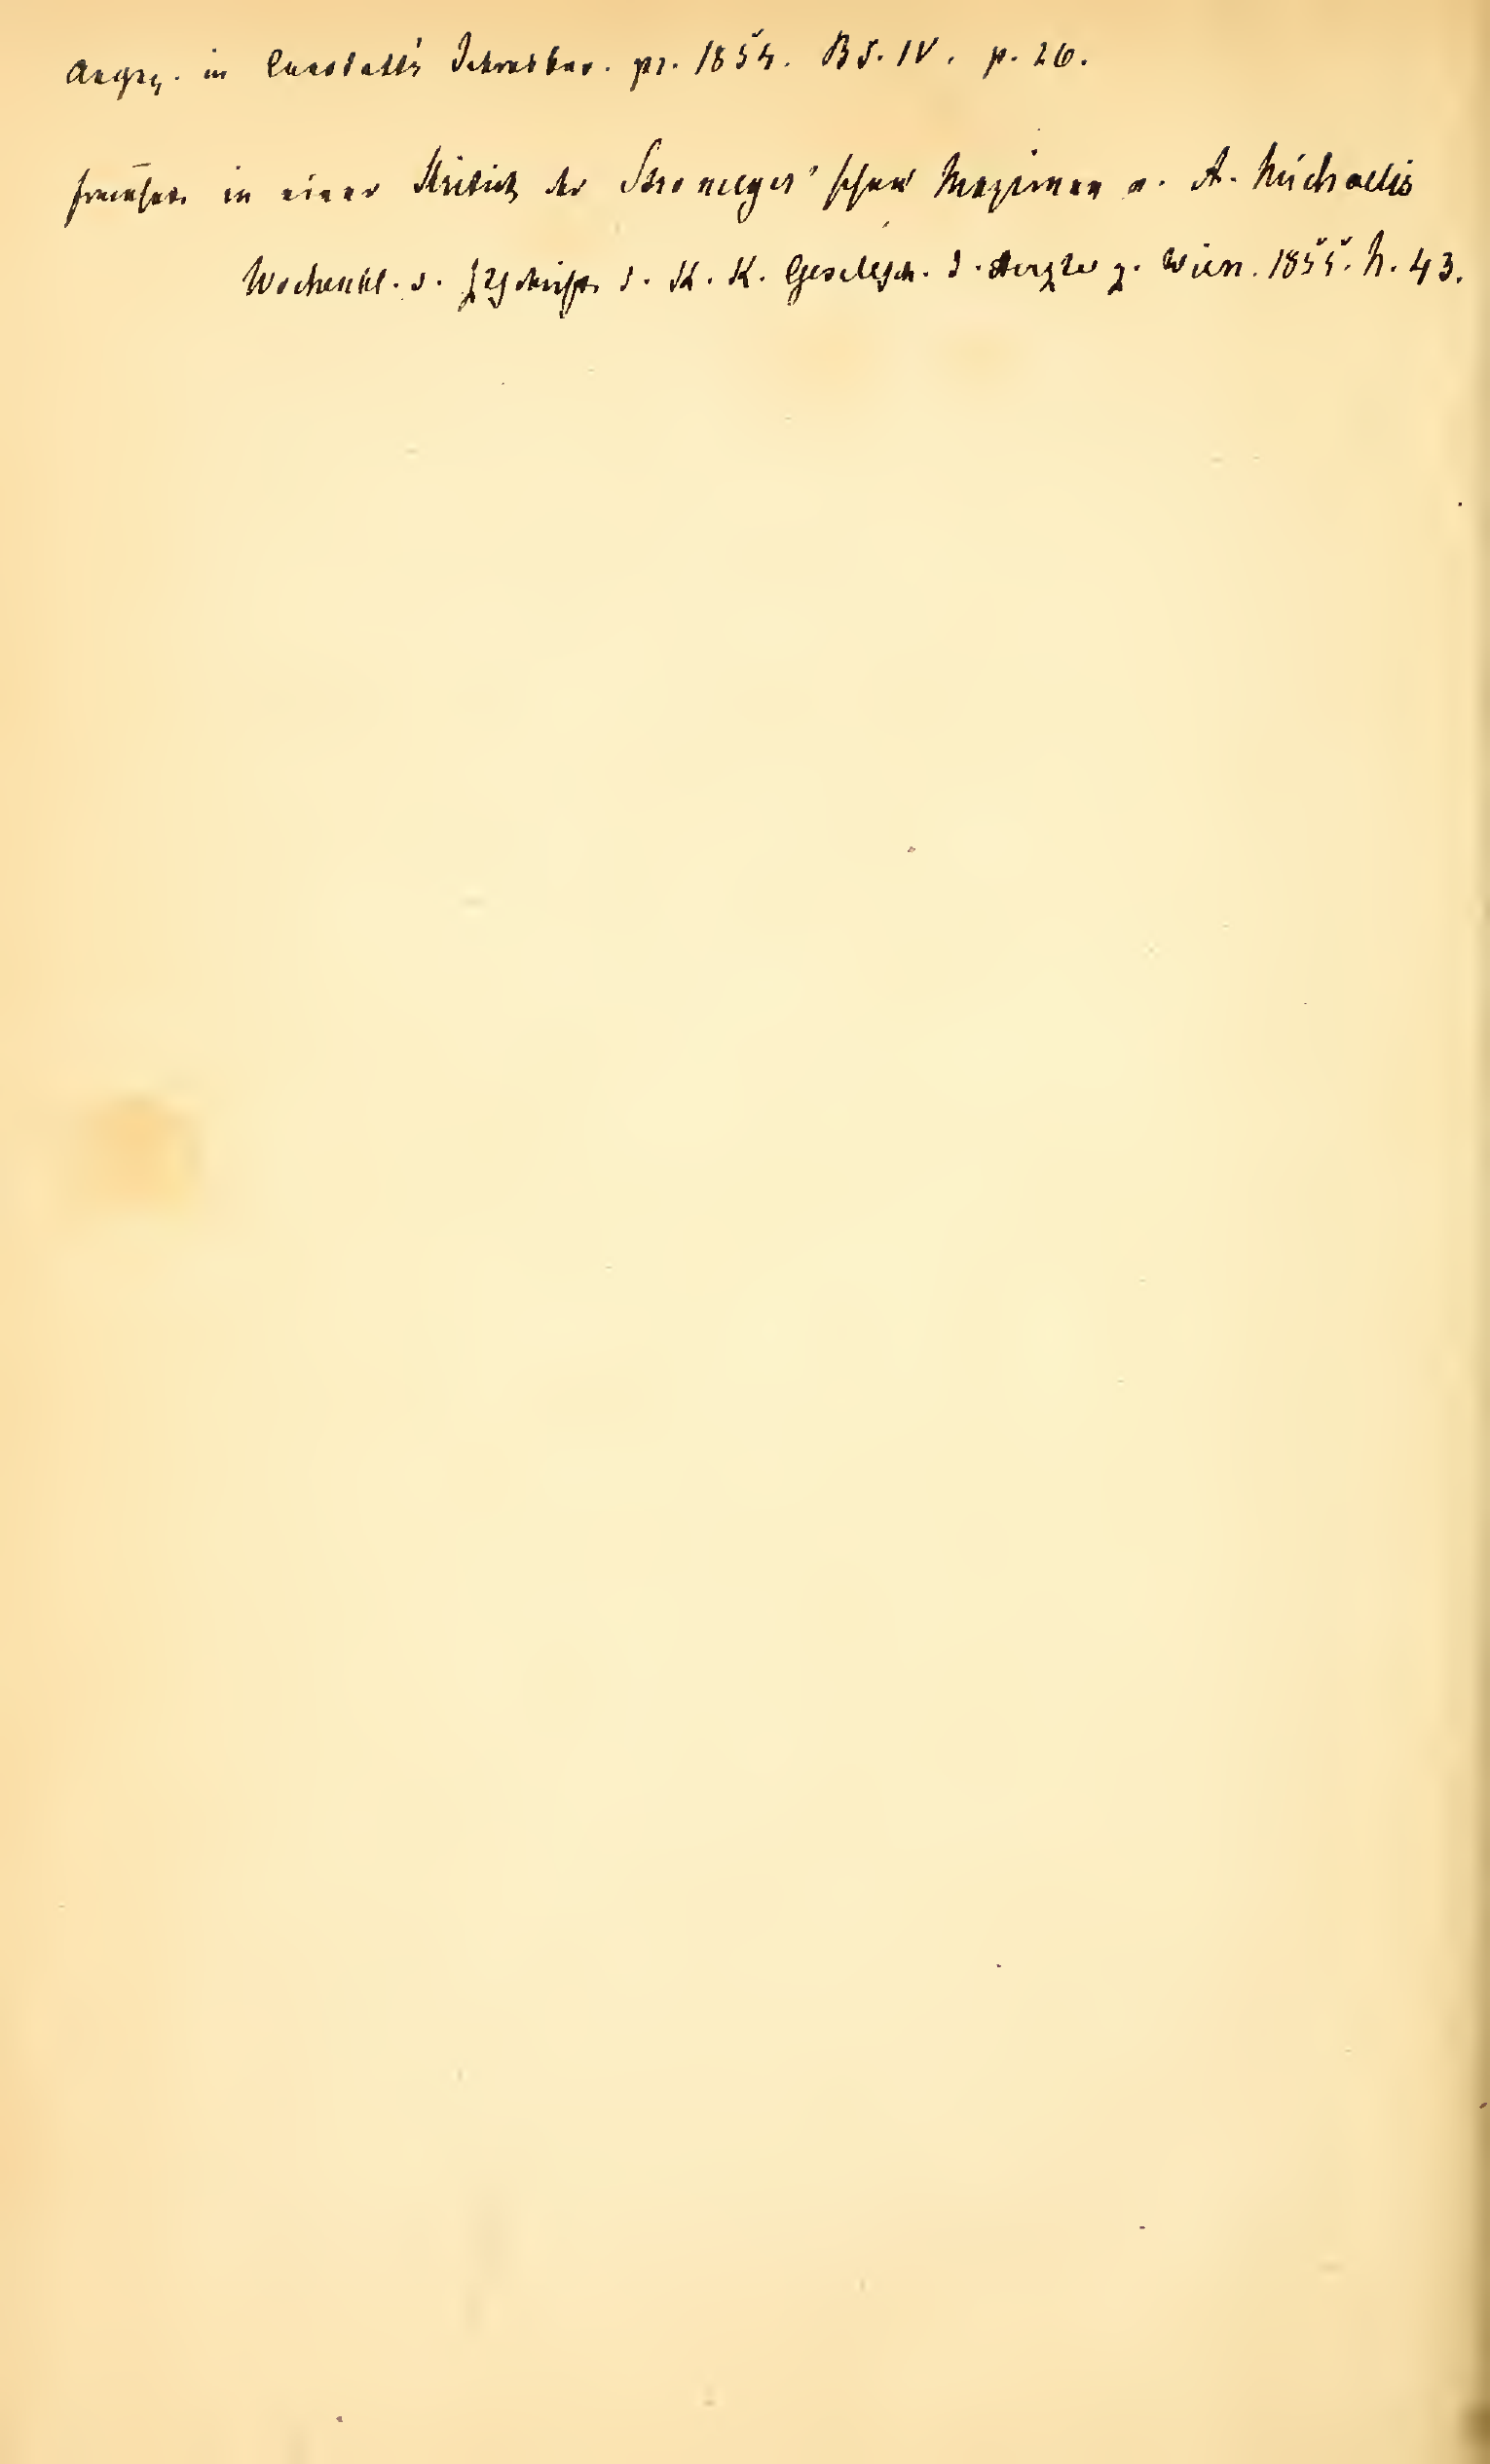 Angez. in Canstatt's Jahresber. pr. 1854. Bd. IV. p. 26.
in einer Kritik der Stromeyer'schen Maximen v. A. Michaelis
Wochenbl. d. Ztschrift d. K. K. Gesellsch. d. Aerzte z. Wien. 1855. N. 43.